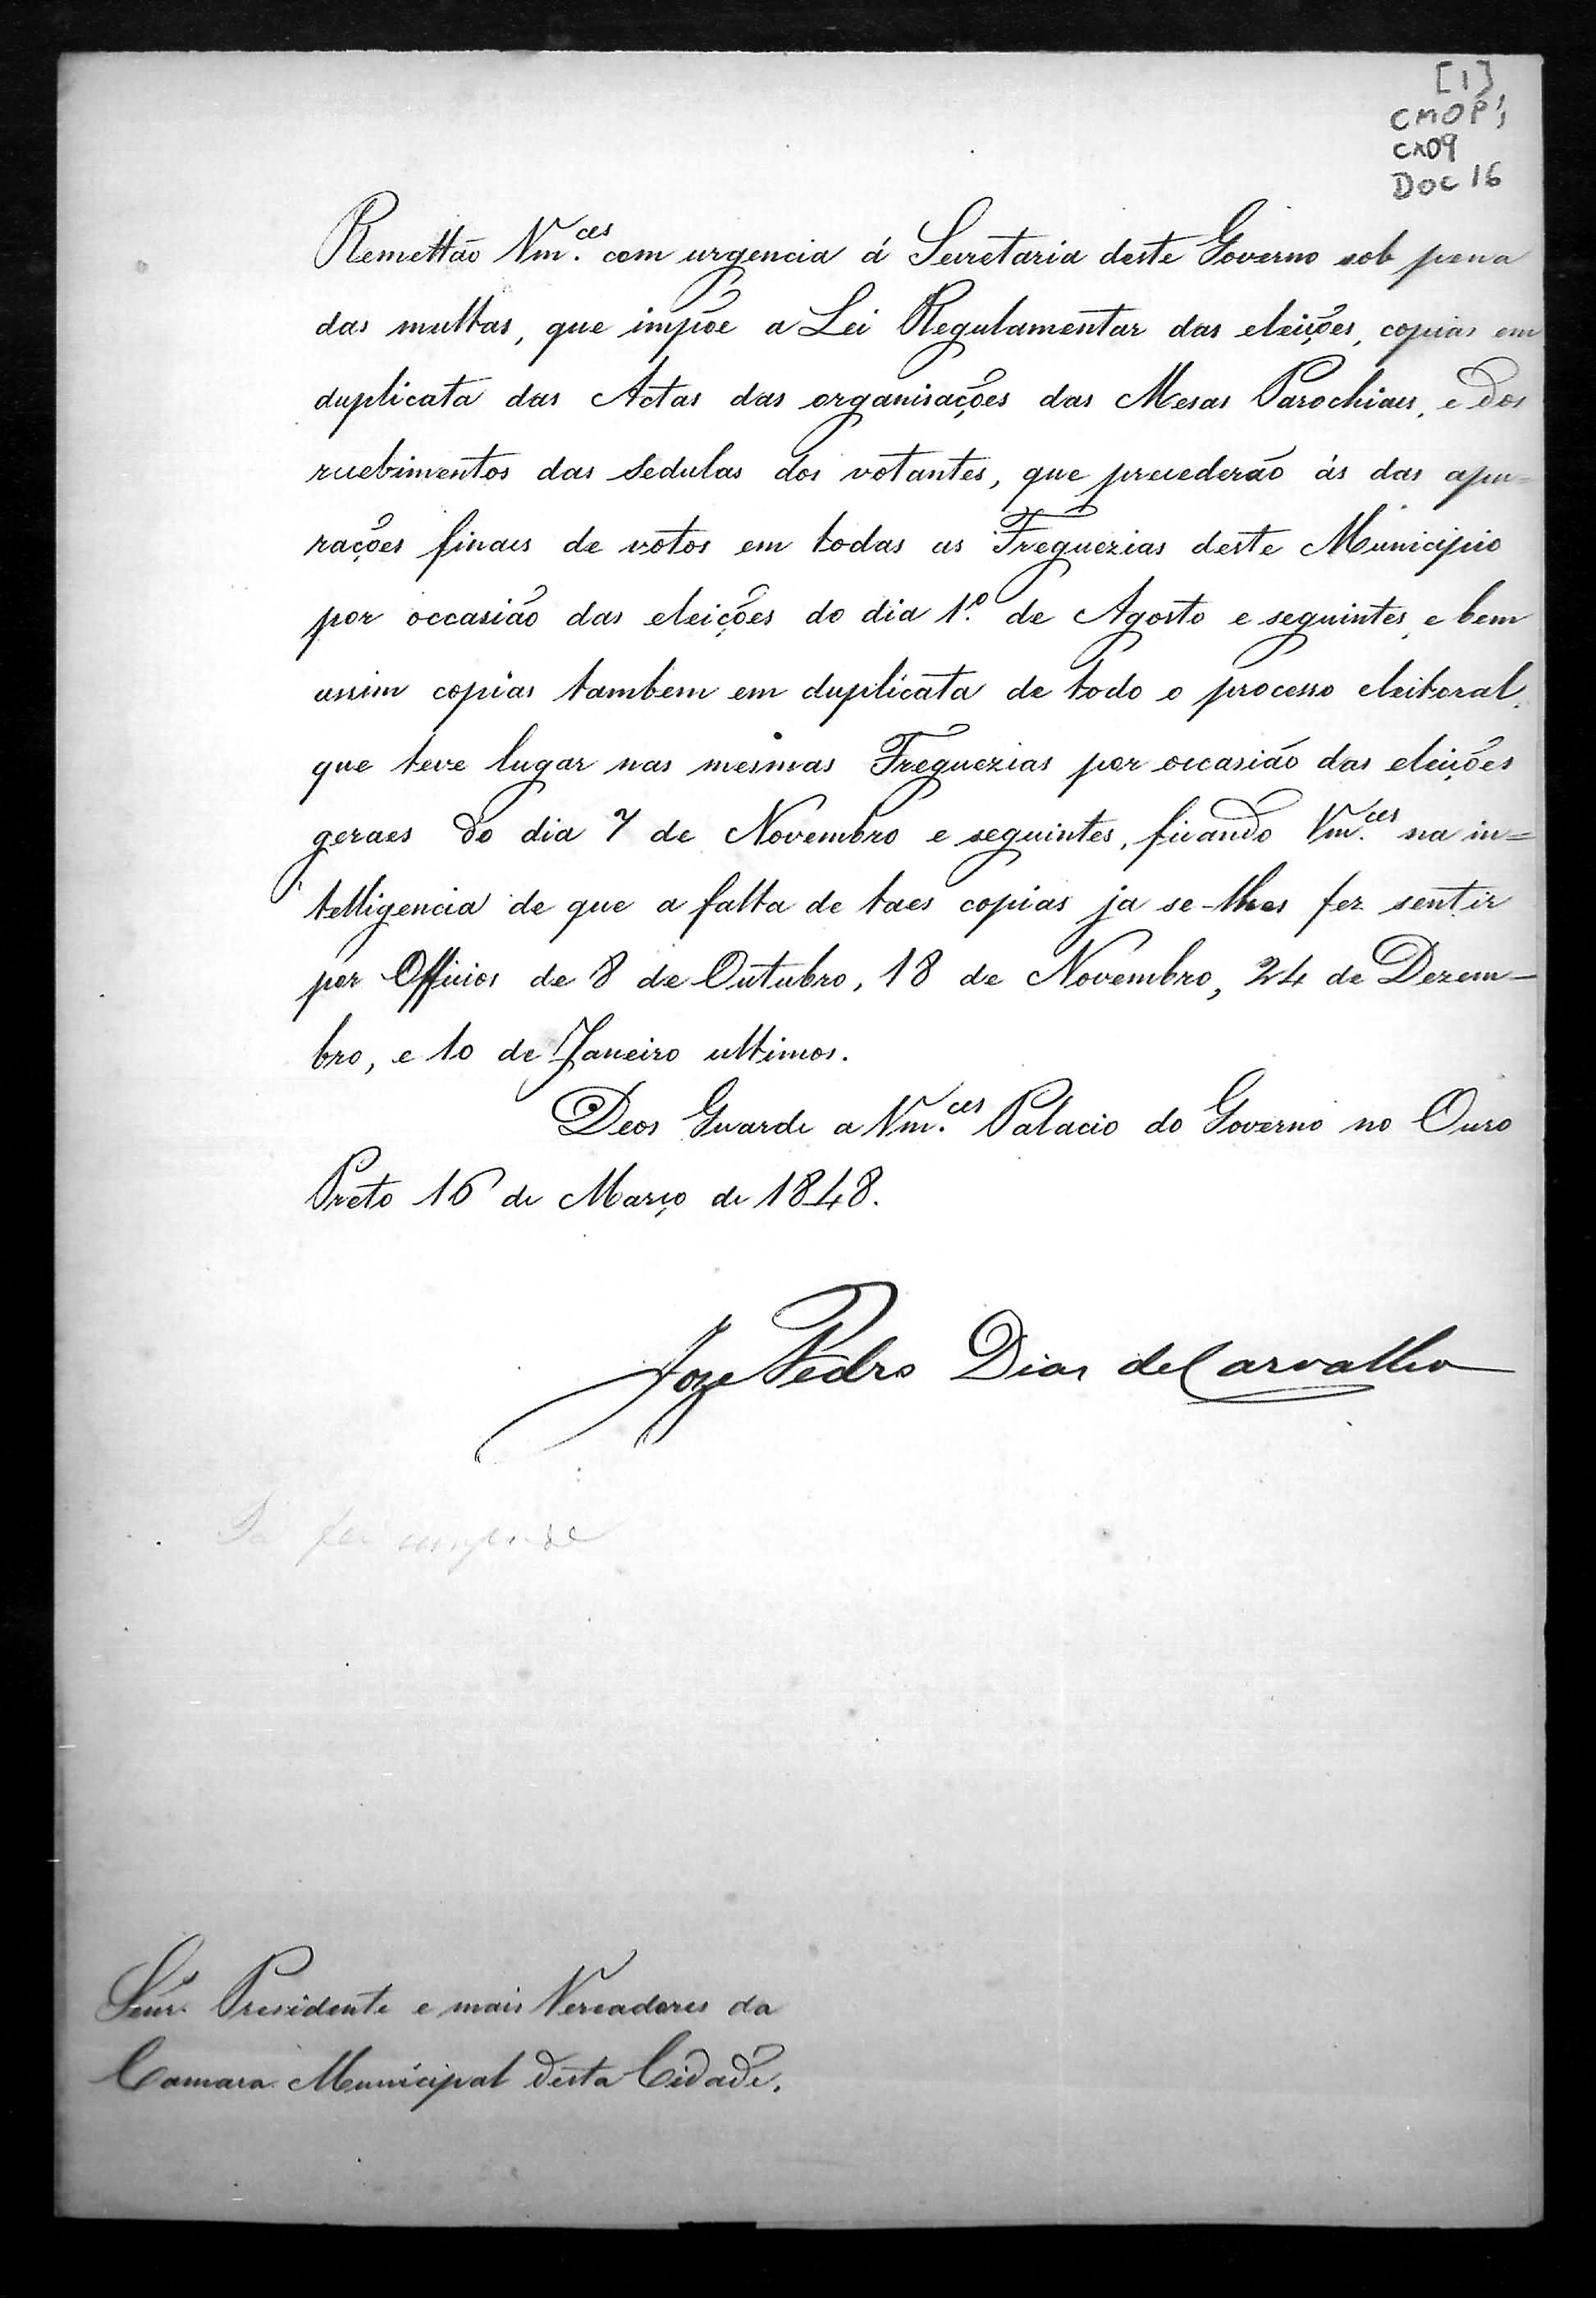 [1]
CMOP,
CX09
DOC 16
Remettão Vm.ces com urgencia á Secretaria deste Governo sob pena
das multas, que impõe a Lei Regulamentar das eleições, copias em
duplicata das Actas das organisações das Mesas Parochiaes, e dos
recebimentos das sedulas dos votantes, que precederão ás das apu=
rações finaes de votos em todas as Freguezias deste Municipio
por occasião das eleições do dia 1.º de Agosto e seguintes, e bem
assim copias tambem em duplicata de todo o processo eleitoral,
que teve lugar nas mesmas Freguezias por occasião das eleições
geraes do dia 7 de Novembro e seguintes, ficando Vm.ces na in=
telligencia de que a falta de taes copias ja se-lhes fez sentir
por Officios de 8 de Outubro, 18 de Novembro, 24 de Dezem-
bro, e 10 de Janeiro ultimos.
Deos Guarde a Vm.ces Palacio do Governo no Ouro
Preto 16 de Março de 1848.
Joze Pedro Dias de Carvalho
Senr. Presidente e mais Vereadores da
Camara Municipal desta Cidade.